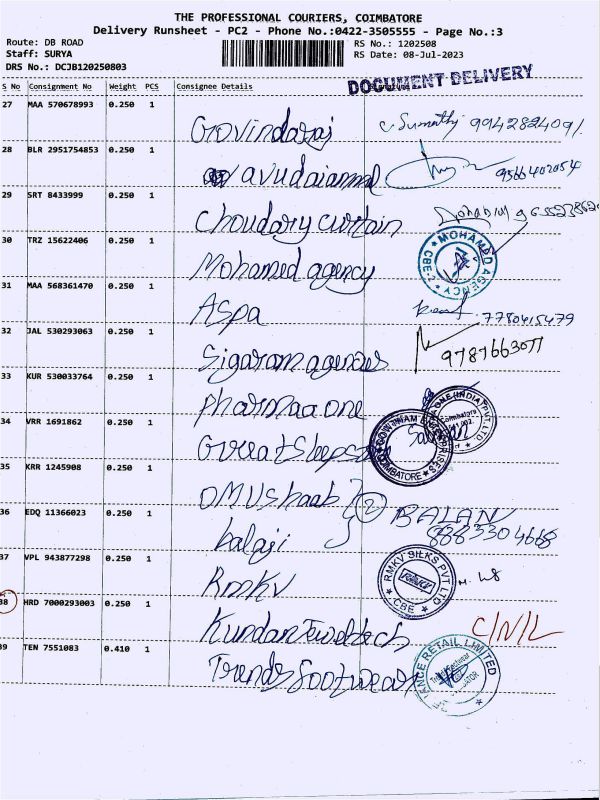 THE PROFESSIONAL COURIERS, COIMBATORE
Delivery Runsheet - PC2 - Phone No.:0422-3505555 - Page No.:3
Route: DB ROAD RS No.: 1202508
Staff: SURYA RS Date: 08-Jul-2023
DRS No.: DCJB120250803
DOCUMENT DELIVERY
S No Consignment No Weight PCS Consignee Details
27 MAA 570678993 0.250 1
Govindaraj Sumathi 9942824091
28 BLR 2951754853 0.250 1
avudaiammal 9566402054
29 SRT 8433999 0.250 1
Choudary curtain
30 TRZ 15622406 0.250 1
Mohamed agency MOHAMED AGENCY CBE-2
31 MAA 568361470 0.250 1
Aspa 7780415479
32 JAL 530293063 0.250 1
Sigaram agencies 9787663077
33 KUR 530033764 0.250 1
Pharmaa one ONE (INDIA) PVT. LTD Coimbatore
34 VRR 1691862 0.250 1
GOWTHAM ENTERPRISES COIMBATORE
35 KRR 1245908 0.250 1
36 EDQ 11366023 0.250 1
2 BALAN
balaji 8883304668
37 VPL 943877298 0.250 1
RMKV RMKV SILKS PVT LTD RMKV CBE
38 HRD 7000293003 0.250 1
Kundan Jeweltech C/N/L
39 TEN 7551083 0.410 1
Trends footwear RELIANCE RETAIL LIMITED